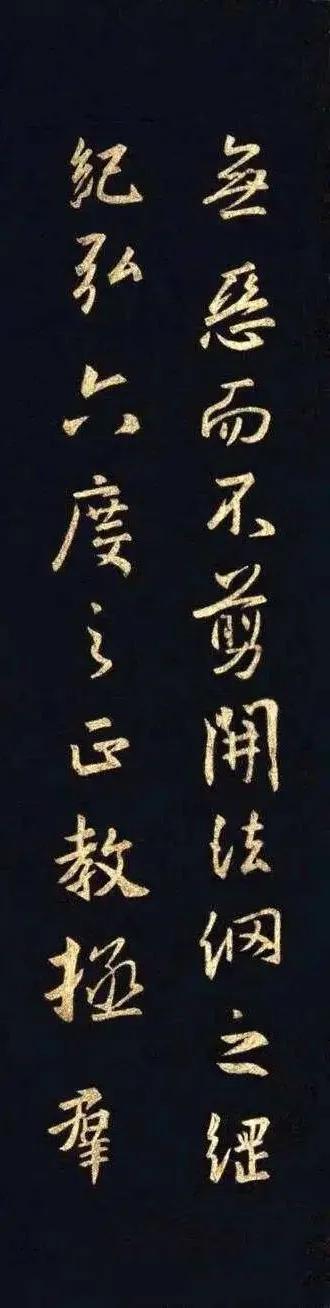 無惡而不剪開法網之綱
紀弘六度之正教拯羣